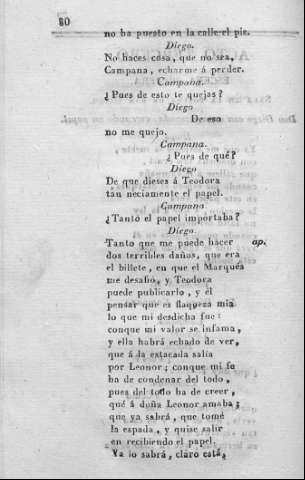 80
no ha puesto en la calle el pie.
Diego.
No haces cosa, que no sea,
Campana, echarme á perder.
Campana.
¿Pues de esto te quejas?
Diego
De eso
no me quejo.
Campana.
¿Pues de qué?
Diego
De que dieses á Teodora
tan neciamente el papel.
Campana
¿Tanto el papel importaba?
Diego.
Tanto que me puede hacer ap.
dos terribles daños, que era
el billete, en que el Marqués
me desafió, y Teodora
puede publicarlo, y él
pensar que es flaqueza mia
lo que mi desdicha fue:
conque mi valor se infama,
y ella habrá echado de ver,
que á la estacada salía
por Leonor; conque mi fe
ha de condenar del todo,
pues del todo ha de creer,
que á doña Leonor amaba;
que ya sabrá, que tomé
la espada, y quise salir
en recibiendo el papel.
Ya lo sabrá, claro está,